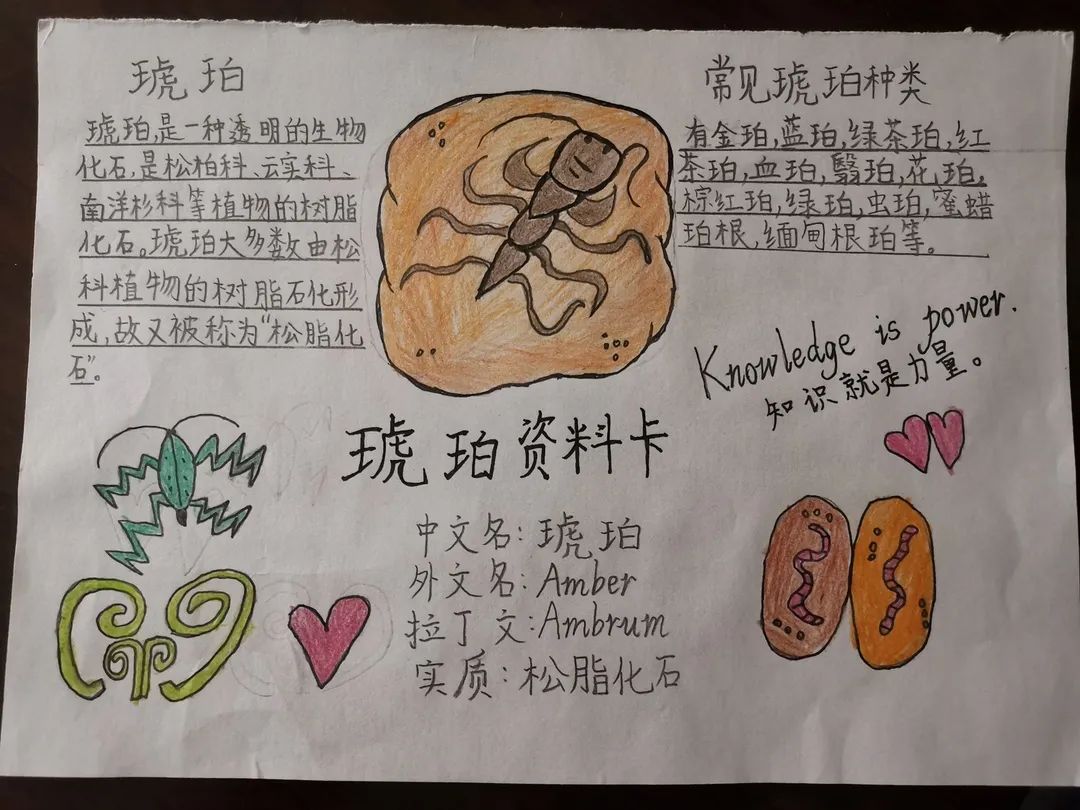 琥珀
琥珀,是一种透明的生物
化石,是松柏科、云实科、
南洋杉科等植物的树脂
化石。琥珀大多数由松
科植物的树脂石化形
成,故又被称为“松脂化
石”。
常见琥珀种类
有金珀,蓝珀,绿茶珀,红
茶珀,血珀,翳珀,花珀,
棕红珀,绿珀,虫珀,蜜蜡
珀根,缅甸根珀等。
Knowledge is power.
知识就是力量。
琥珀资料卡
中文名:琥珀
外文名:Amber
拉丁文:Ambrum
实质:松脂化石